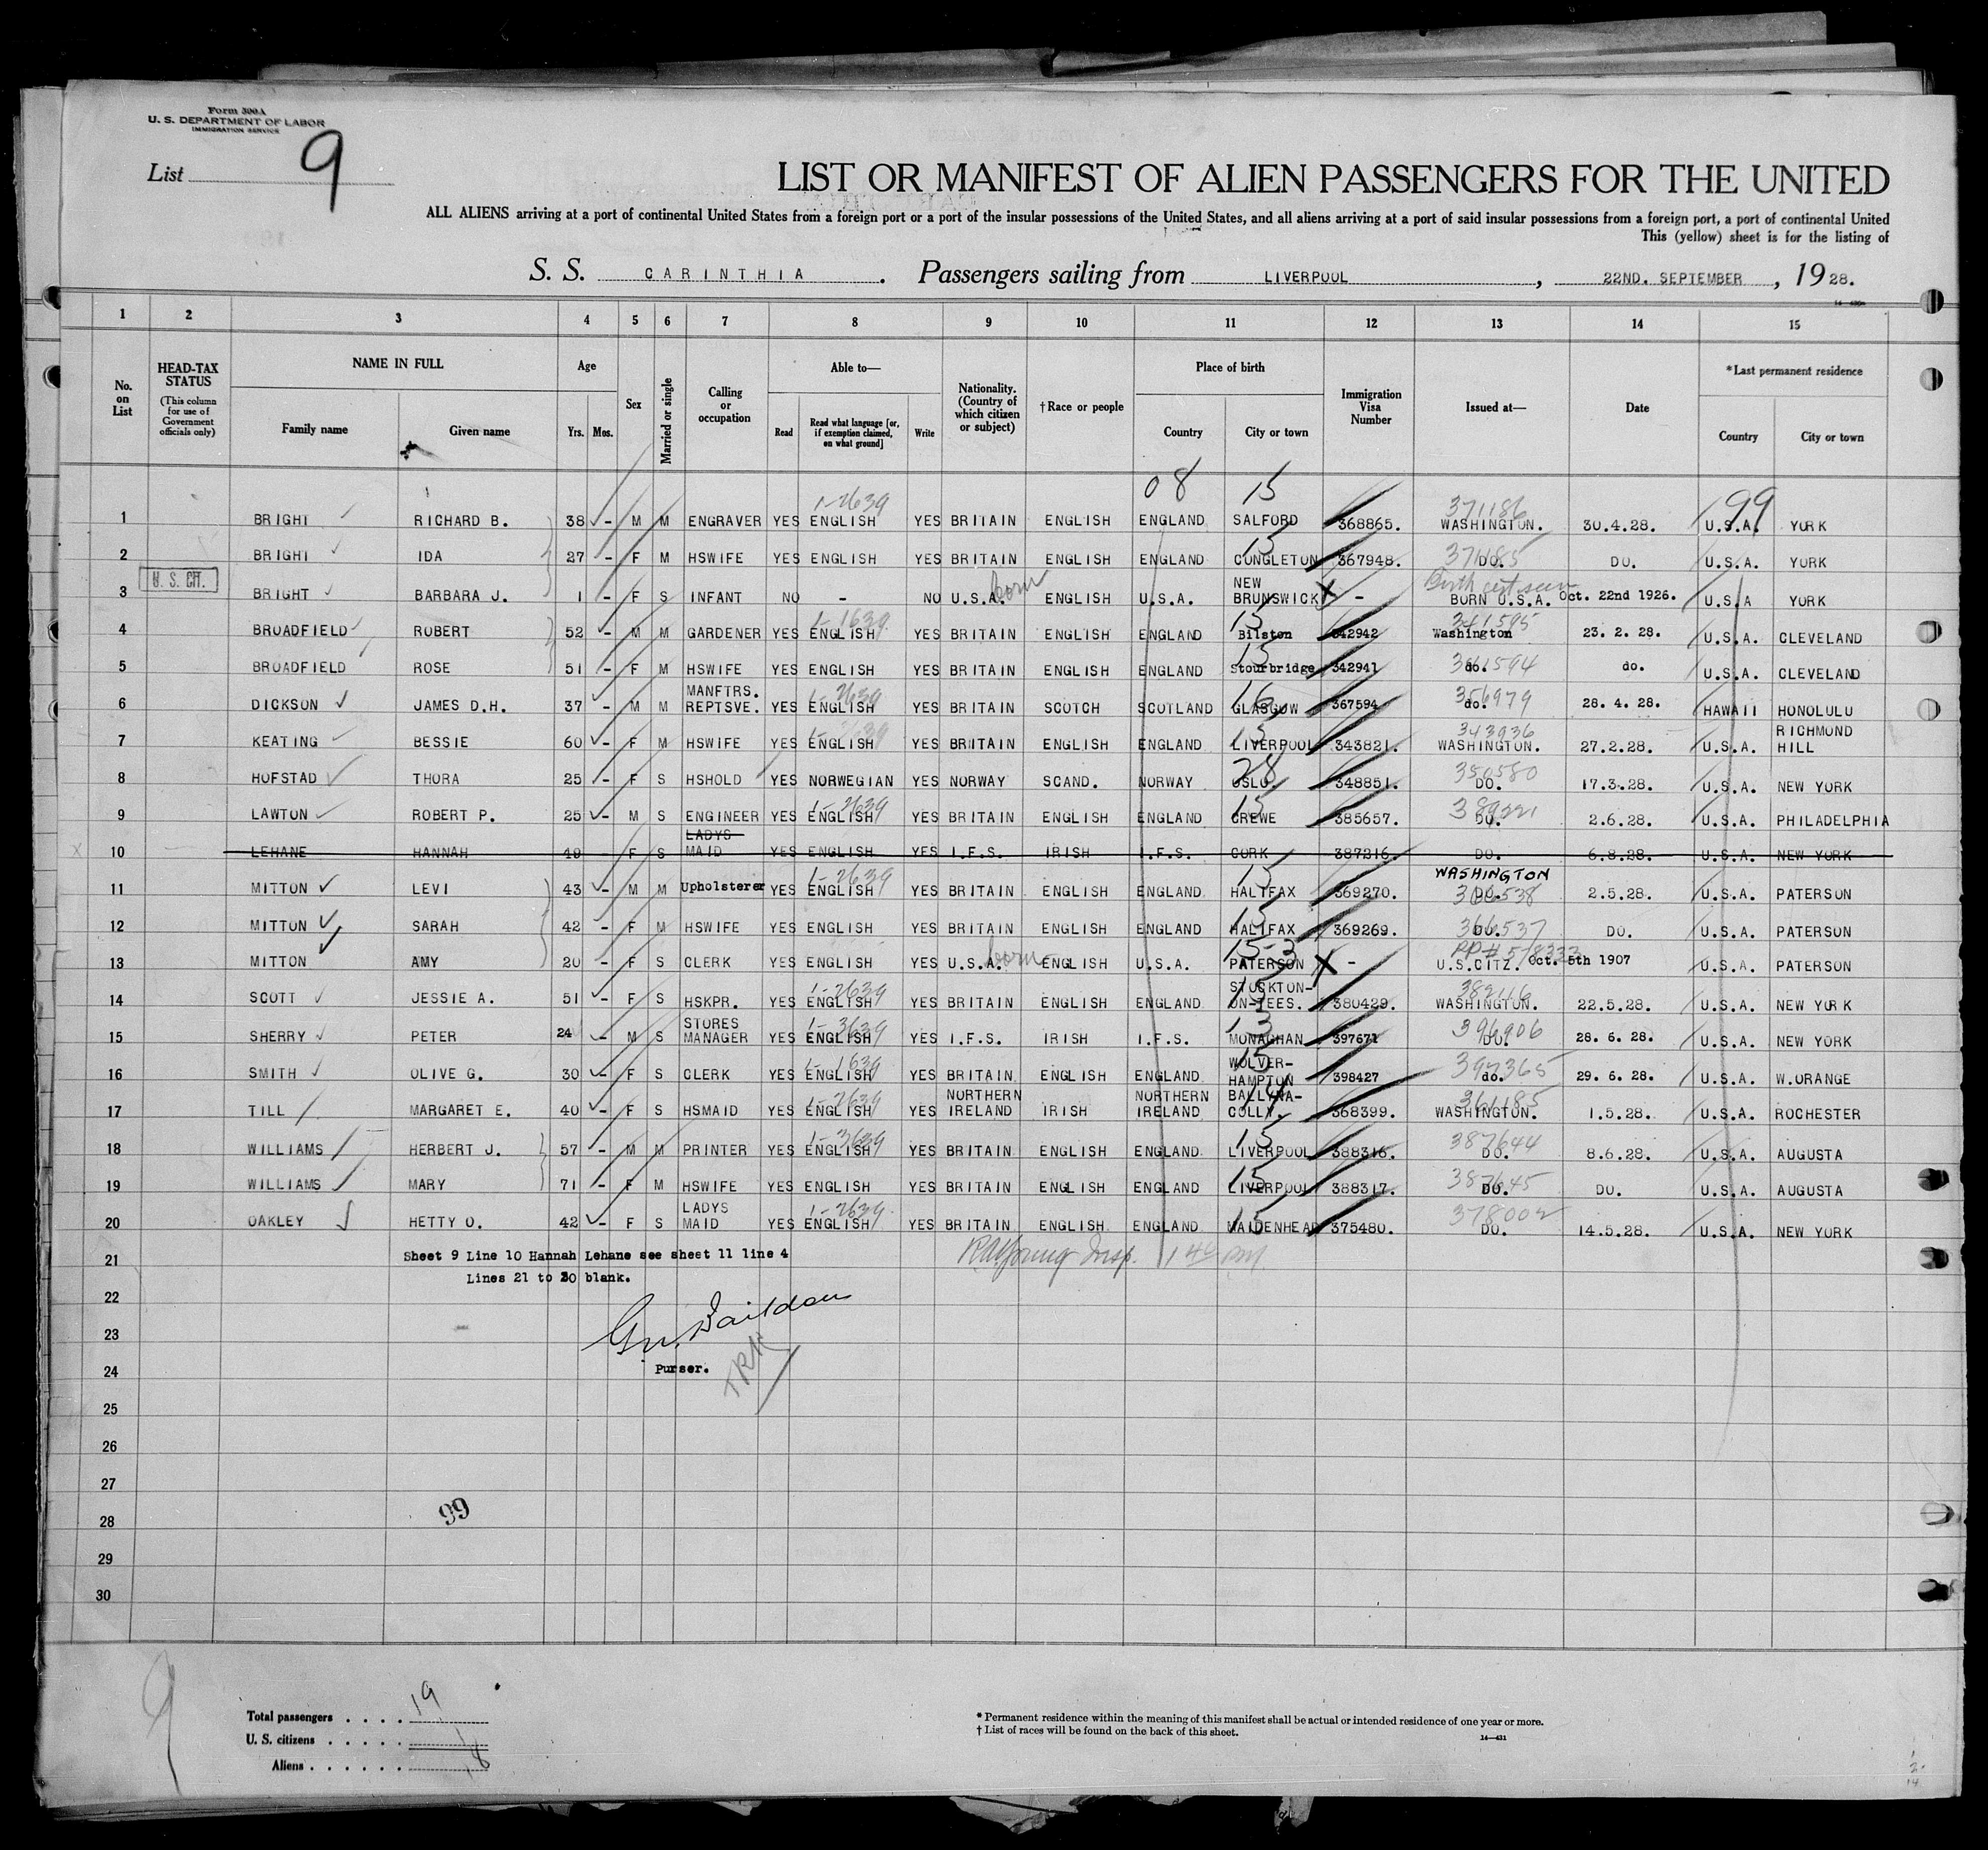 Form 500A
U. S. DEPARTMENT OF LABOR
IMMIGRATION SERVICE
List 9
LIST OR MANIFEST OF ALIEN PASSENGERS FOR THE UNITED
ALL ALIENS arriving at a port of continental United States from a foreign port or a port of the insular possessions of the United States, and all aliens arriving at a port of said insular possessions from a foreign port, a port of continental United
This (yellow) sheet is for the listing of
S. S. CARINTHIA . Passengers sailing from LIVERPOOL , 22ND. SEPTEMBER , 1928.
1 2 3 4 5 6 7 8 9 10 11 12 13 14 15
No. on List
HEAD-TAX STATUS
(This column for use of Government officials only)
NAME IN FULL
Family name Given name
Age
Yrs. Mos.
Sex
Married or single
Calling or occupation
Able to—
Read
Read what language [or, if exemption claimed, on what ground]
Write
Nationality. (Country of which citizen or subject)
† Race or people
Place of birth
Country City or town
Immigration Visa Number
Issued at—
Date
* Last permanent residence
Country City or town
08 15 99
1 BRIGHT RICHARD B. 38 - M M ENGRAVER YES ENGLISH 1-2639 YES BRITAIN ENGLISH ENGLAND SALFORD 368865. 371186 WASHINGTON. 30.4.28. U.S.A. YORK
2 BRIGHT IDA 27 - F M HSWIFE YES ENGLISH YES BRITAIN ENGLISH ENGLAND CONGLETON 15 367948. DO. DO. U.S.A. YORK
U. S. CIT.
3 BRIGHT BARBARA J. 1 - F S INFANT NO - NO U.S.A. born ENGLISH U.S.A. NEW BRUNSWICK X - Birth cert seen BORN U.S.A. Oct. 22nd 1926. U.S.A YORK
4 BROADFIELD ROBERT 52 - M M GARDENER YES ENGLISH 1-1639 YES BRITAIN ENGLISH ENGLAND Bilston 15 342942 341595 Washington 23. 2. 28. U.S.A. CLEVELAND
5 BROADFIELD ROSE 51 - F M HSWIFE YES ENGLISH YES BRITAIN ENGLISH ENGLAND Stourbridge 15 342941 341594 do. do. U.S.A. CLEVELAND
6 DICKSON JAMES D.H. 37 - M M MANFTRS. REPTSVE. YES ENGLISH 1-2639 YES BRITAIN SCOTCH SCOTLAND GLASGOW 16 367594 356979 do. 28. 4. 28. HAWAII HONOLULU
7 KEATING BESSIE 60 - F M HSWIFE YES ENGLISH YES BRITAIN ENGLISH ENGLAND LIVERPOOL 15 343821. 343936 WASHINGTON. 27.2.28. U.S.A. RICHMOND HILL
8 HOFSTAD THORA 25 - F S HSHOLD YES NORWEGIAN YES NORWAY SCAND. NORWAY OSLO 28 348851. 350580 DO. 17.3.28. U.S.A. NEW YORK
9 LAWTON ROBERT P. 25 - M S ENGINEER YES ENGLISH 1-2639 YES BRITAIN ENGLISH ENGLAND CREWE 15 385657. DO. 2.6.28. U.S.A. PHILADELPHIA
10 LEHANE HANNAH 49 - F S LADYS MAID YES ENGLISH YES I.F.S. IRISH I.F.S. CORK 387216. DO. 6.8.28. U.S.A. NEW YORK
11 MITTON LEVI 43 - M M Upholsterer YES ENGLISH 1-2639 YES BRITAIN ENGLISH ENGLAND HALIFAX 15 369270. WASHINGTON DO. 366538 2.5.28. U.S.A. PATERSON
12 MITTON SARAH 42 - F M HSWIFE YES ENGLISH YES BRITAIN ENGLISH ENGLAND HALIFAX 15 369269. 366537 DO. DO. U.S.A. PATERSON
13 MITTON AMY 20 - F S CLERK YES ENGLISH YES U.S.A. born ENGLISH U.S.A. PATERSON 15-3 X - PP# 518333 U.S.CITZ. Oct. 5th 1907 U.S.A. PATERSON
14 SCOTT JESSIE A. 51 - F S HSKPR. YES ENGLISH 1-2639 YES BRITAIN ENGLISH ENGLAND STOCKTON-ON-TEES. 15 380429. 382116 WASHINGTON. 22.5.28. U.S.A. NEW YORK
15 SHERRY PETER 24 - M S STORES MANAGER YES ENGLISH 1-3639 YES I.F.S. IRISH I.F.S. MONAGHAN 13 397671 396906 DO. 28. 6. 28. U.S.A. NEW YORK
16 SMITH OLIVE G. 30 - F S CLERK YES ENGLISH 1-1639 YES BRITAIN ENGLISH ENGLAND WOLVER-HAMPTON 15 398427 397365 do. 29. 6. 28. U.S.A. W.ORANGE
17 TILL MARGARET E. 40 - F S HSMAID YES ENGLISH 1-2639 YES NORTHERN IRELAND IRISH NORTHERN IRELAND BALLYNA-COLLY. 14 368399. 361185 WASHINGTON. 1.5.28. U.S.A. ROCHESTER
18 WILLIAMS HERBERT J. 57 - M M PRINTER YES ENGLISH 1-3639 YES BRITAIN ENGLISH ENGLAND LIVERPOOL 15 388316. 387644 DO. 8.6.28. U.S.A. AUGUSTA
19 WILLIAMS MARY 71 - F M HSWIFE YES ENGLISH YES BRITAIN ENGLISH ENGLAND LIVERPOOL 15 388317. 387645 DO. DO. U.S.A. AUGUSTA
20 OAKLEY HETTY O. 42 - F S LADYS MAID YES ENGLISH 1-2639 YES BRITAIN ENGLISH ENGLAND MAIDENHEAD 15 375480. 378002 DO. 14.5.28. U.S.A. NEW YORK
21 Sheet 9 Line 10 Hannah Lehane see sheet 11 line 4
Lines 21 to 30 blank.
22
23
24 Purser.
25
26
27
28 99
29
30
9
Total passengers . . . . 19
U. S. citizens . . . . . 1
Aliens . . . . . . 18
* Permanent residence within the meaning of this manifest shall be actual or intended residence of one year or more.
† List of races will be found on the back of this sheet.
14—431